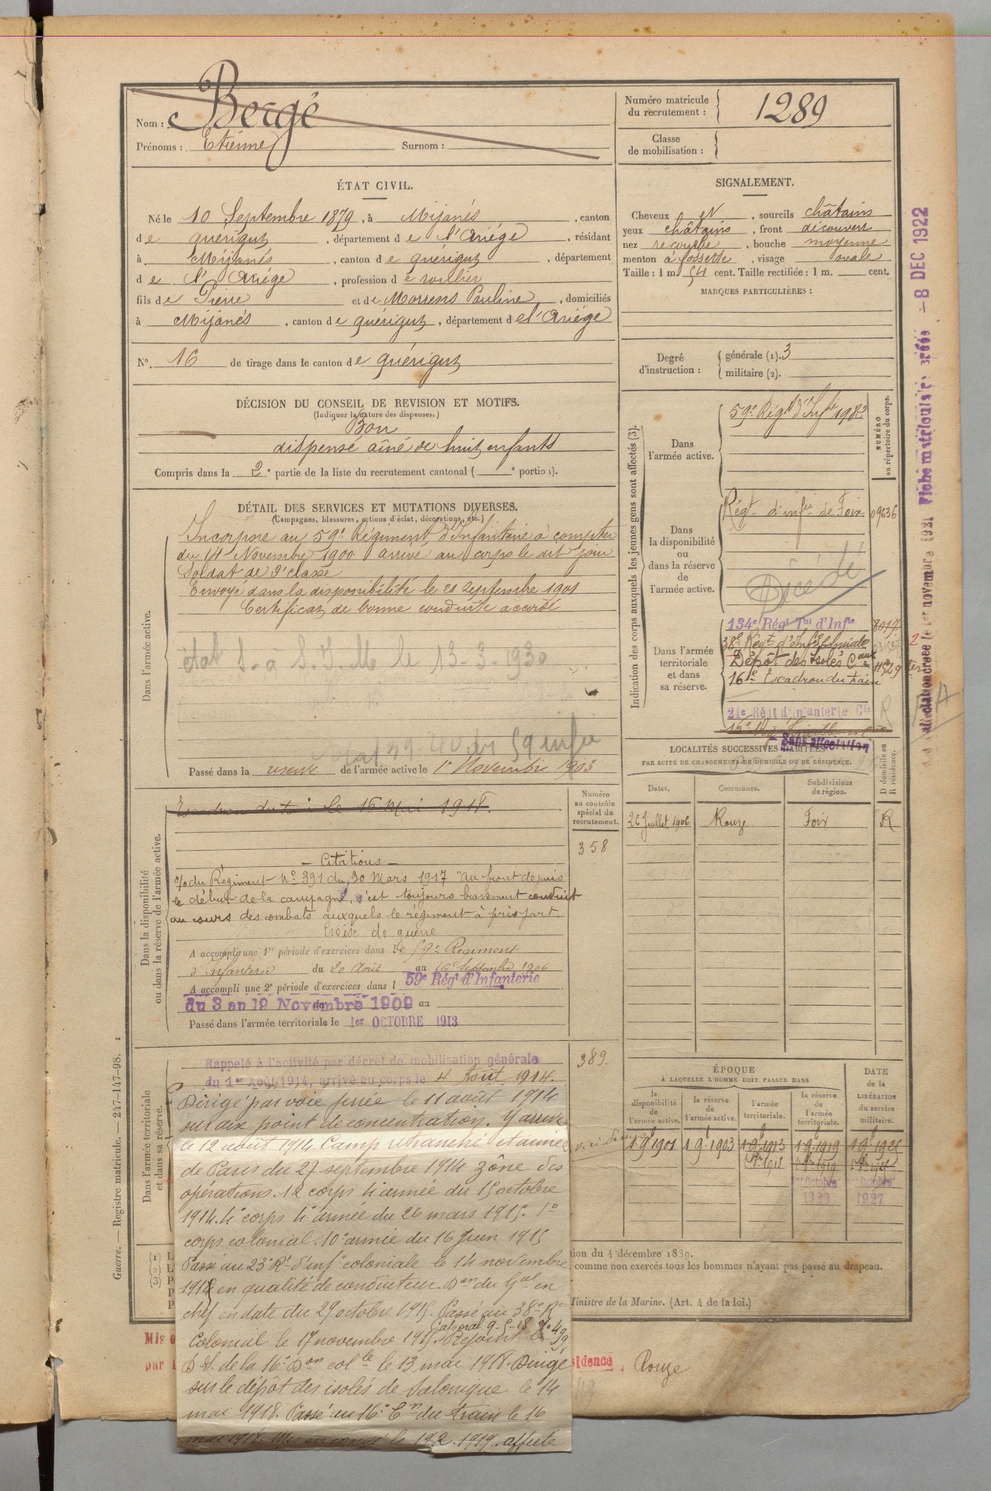 Nom : Bergé
Prénoms : Etienne Surnom :
Numéro matricule du recrutement : 1289
Classe de mobilisation :
ÉTAT CIVIL.
Né le 10 Septembre 1879, à Mijanés, canton
de quérigut, département de l'Ariége, résidant
à Mijanés, canton de quérigut, département
de l'Ariége, profession de
fils de Pierre et de Morrens Pauline, domiciliés
à Mijanés, canton de quérigut, département de l'Ariége
N° 16 de tirage dans le canton de quérigut
SIGNALEMENT.
Cheveux N, sourcils châtains
yeux châtains, front découvert
nez recourbé, bouche moyenne
menton à fossette, visage ovale
Taille : 1 m 54 cent. Taille rectifiée : 1 m. cent.
MARQUES PARTICULIÈRES :
Degré d'instruction : générale (1). 3
militaire (2).
DÉCISION DU CONSEIL DE REVISION ET MOTIFS.
(Indiquer la nature des dispenses.)
Bon
dispensé aîné de huit enfants
Compris dans la 2e partie de la liste du recrutement cantonal ( e portion).
DÉTAIL DES SERVICES ET MUTATIONS DIVERSES.
(Campagnes, blessures, actions d'éclat, décorations, etc.)
Dans l'armée active.
Incorporé au 59e Régiment d'Infanterie à compter
du 14 Novembre 1900 arrivé au corps le dit jour
Soldat de 2e classe
Envoyé dans la disponibilité le 21 Septembre 1901
Certificat de bonne conduite accordé
état S. à S. I. M. le 13-3-1930
Passé dans la réserve de l'armée active le 1er Novembre 1903
Indication des corps auxquels les jeunes gens sont affectés (3).
NUMÉRO au répertoire du corps.
Dans l'armée active.
59e Régt d'Infie
Dans la disponibilité ou dans la réserve de l'armée active.
Régt d'infie de Foix
Décédé
Dans l'armée territoriale et dans sa réserve.
134e Régt Tal d'Infie
38e Régt d'Inf. Coloniale
Dépôt des Isolés Caux
16e Escadron du train
21e Régt d'Infanterie Cle
Sans affectation
LOCALITÉS SUCCESSIVES HABITÉES
PAR SUITE DE CHANGEMENTS DE DOMICILE OU DE RÉSIDENCE.
Dates. Communes. Subdivisions de région. D domicile ou R résidence.
22 Juillet 1906 Rouze Foix R
Dans la disponibilité ou dans la réserve de l'armée active.
Numéro au contrôle spécial du recrutement.
358
Escadron du train le 16 Mai 1918.
Citations
O/ du Régiment N° 391 du 30 Mars 1917 "au front depuis
le début de la campagne, s'est toujours bravement conduit
au cours des combats auxquels le régiment à pris part
Croix de guerre
A accompli une 1re période d'exercices dans le 59e Régiment
d'Infanterie du 20 Août au 16 Septembre 1906
A accompli une 2e période d'exercices dans l 59e Régt d'Infanterie
du 3 au 19 Novembre 1909 au
Passé dans l'armée territoriale le 1er OCTOBRE 1913
Dans l'armée territoriale et dans sa réserve.
389.
Rappelé à l'activité par décret de mobilisation générale
du 1er Août 1914, arrivé au corps le 4 Août 1914.
Dirigé par voie ferrée le 11 août 1914
sur aix point de concentration. Y arrivé
le 12 août 1914. Camp retranché et armée
de Paris du 27 septembre 1914 zône des
opérations. 12e corps 4e armée du 15 octobre
1914. 4e corps 4e armée du 26 mars 1915. 1er
corps colonial 10e armée du 16 Juin 1915
Passé au 23e Rt d'infie coloniale le 14 novembre
1915 en qualité de conducteur. Don du Gal en
chef en date du 29 octobre 1915. Passé au 38e R
Colonial le 17 novembre 1915. Rejoint le
D. I. de la 16e Don colle le 13 mai 1918. Dirigé
sur le dépôt des isolés de Salonique le 14
mai 1918. Passé au 16e Eon du train le 16
mai 1918. Mis en congé le 19.2.1919. affecté
ÉPOQUE
À LAQUELLE L'HOMME DOIT PASSER DANS
la disponibilité de l'armée active. la réserve de l'armée active. l'armée territoriale. la réserve de l'armée territoriale.
DATE de la LIBÉRATION du service militaire.
1 9 1901 1 9 1903 1 9 1913 1 9 1919 1 9 1925
1927
tion du 4 décembre 1889.
comme non exercés tous les hommes n'ayant pas passé au drapeau.
Ministre de la Marine. (Art. 4 de la loi.)
sidence. Rouze
Guerre. — Registre matricule. — 247-147-98.
Fiche matricule créée -8 DEC 1922